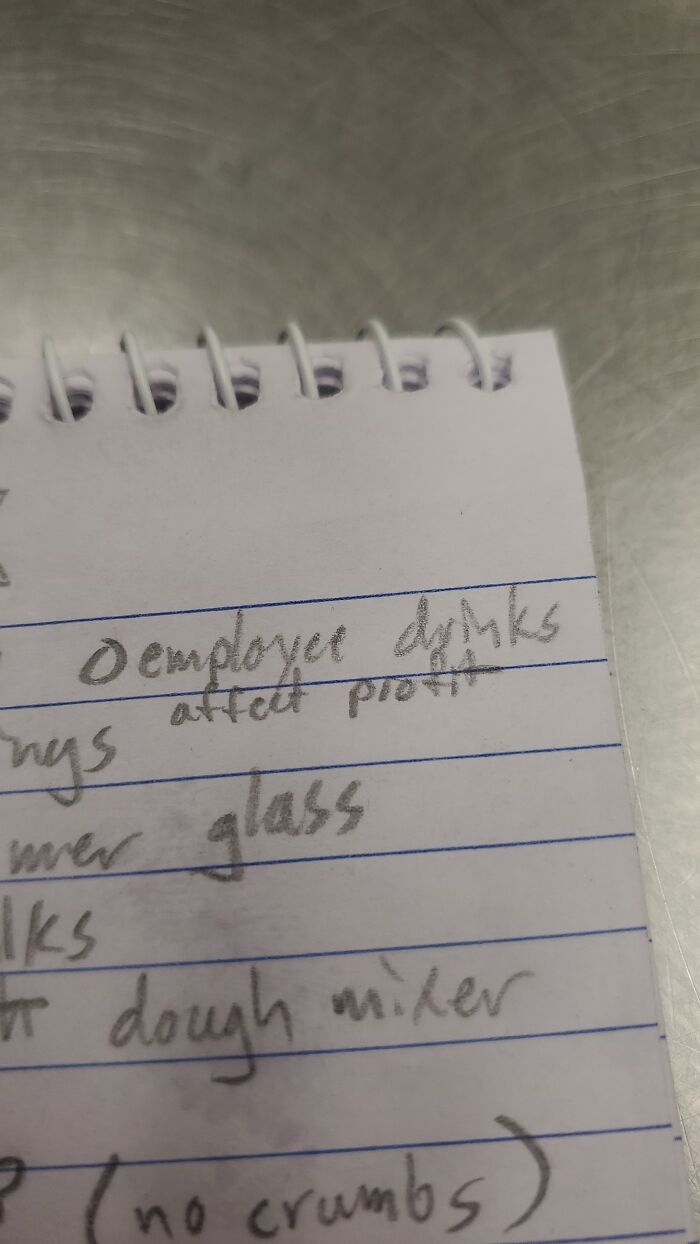 employee drinks
affect profit
ings
mer glass
lks
dough mixer
? (no crumbs)